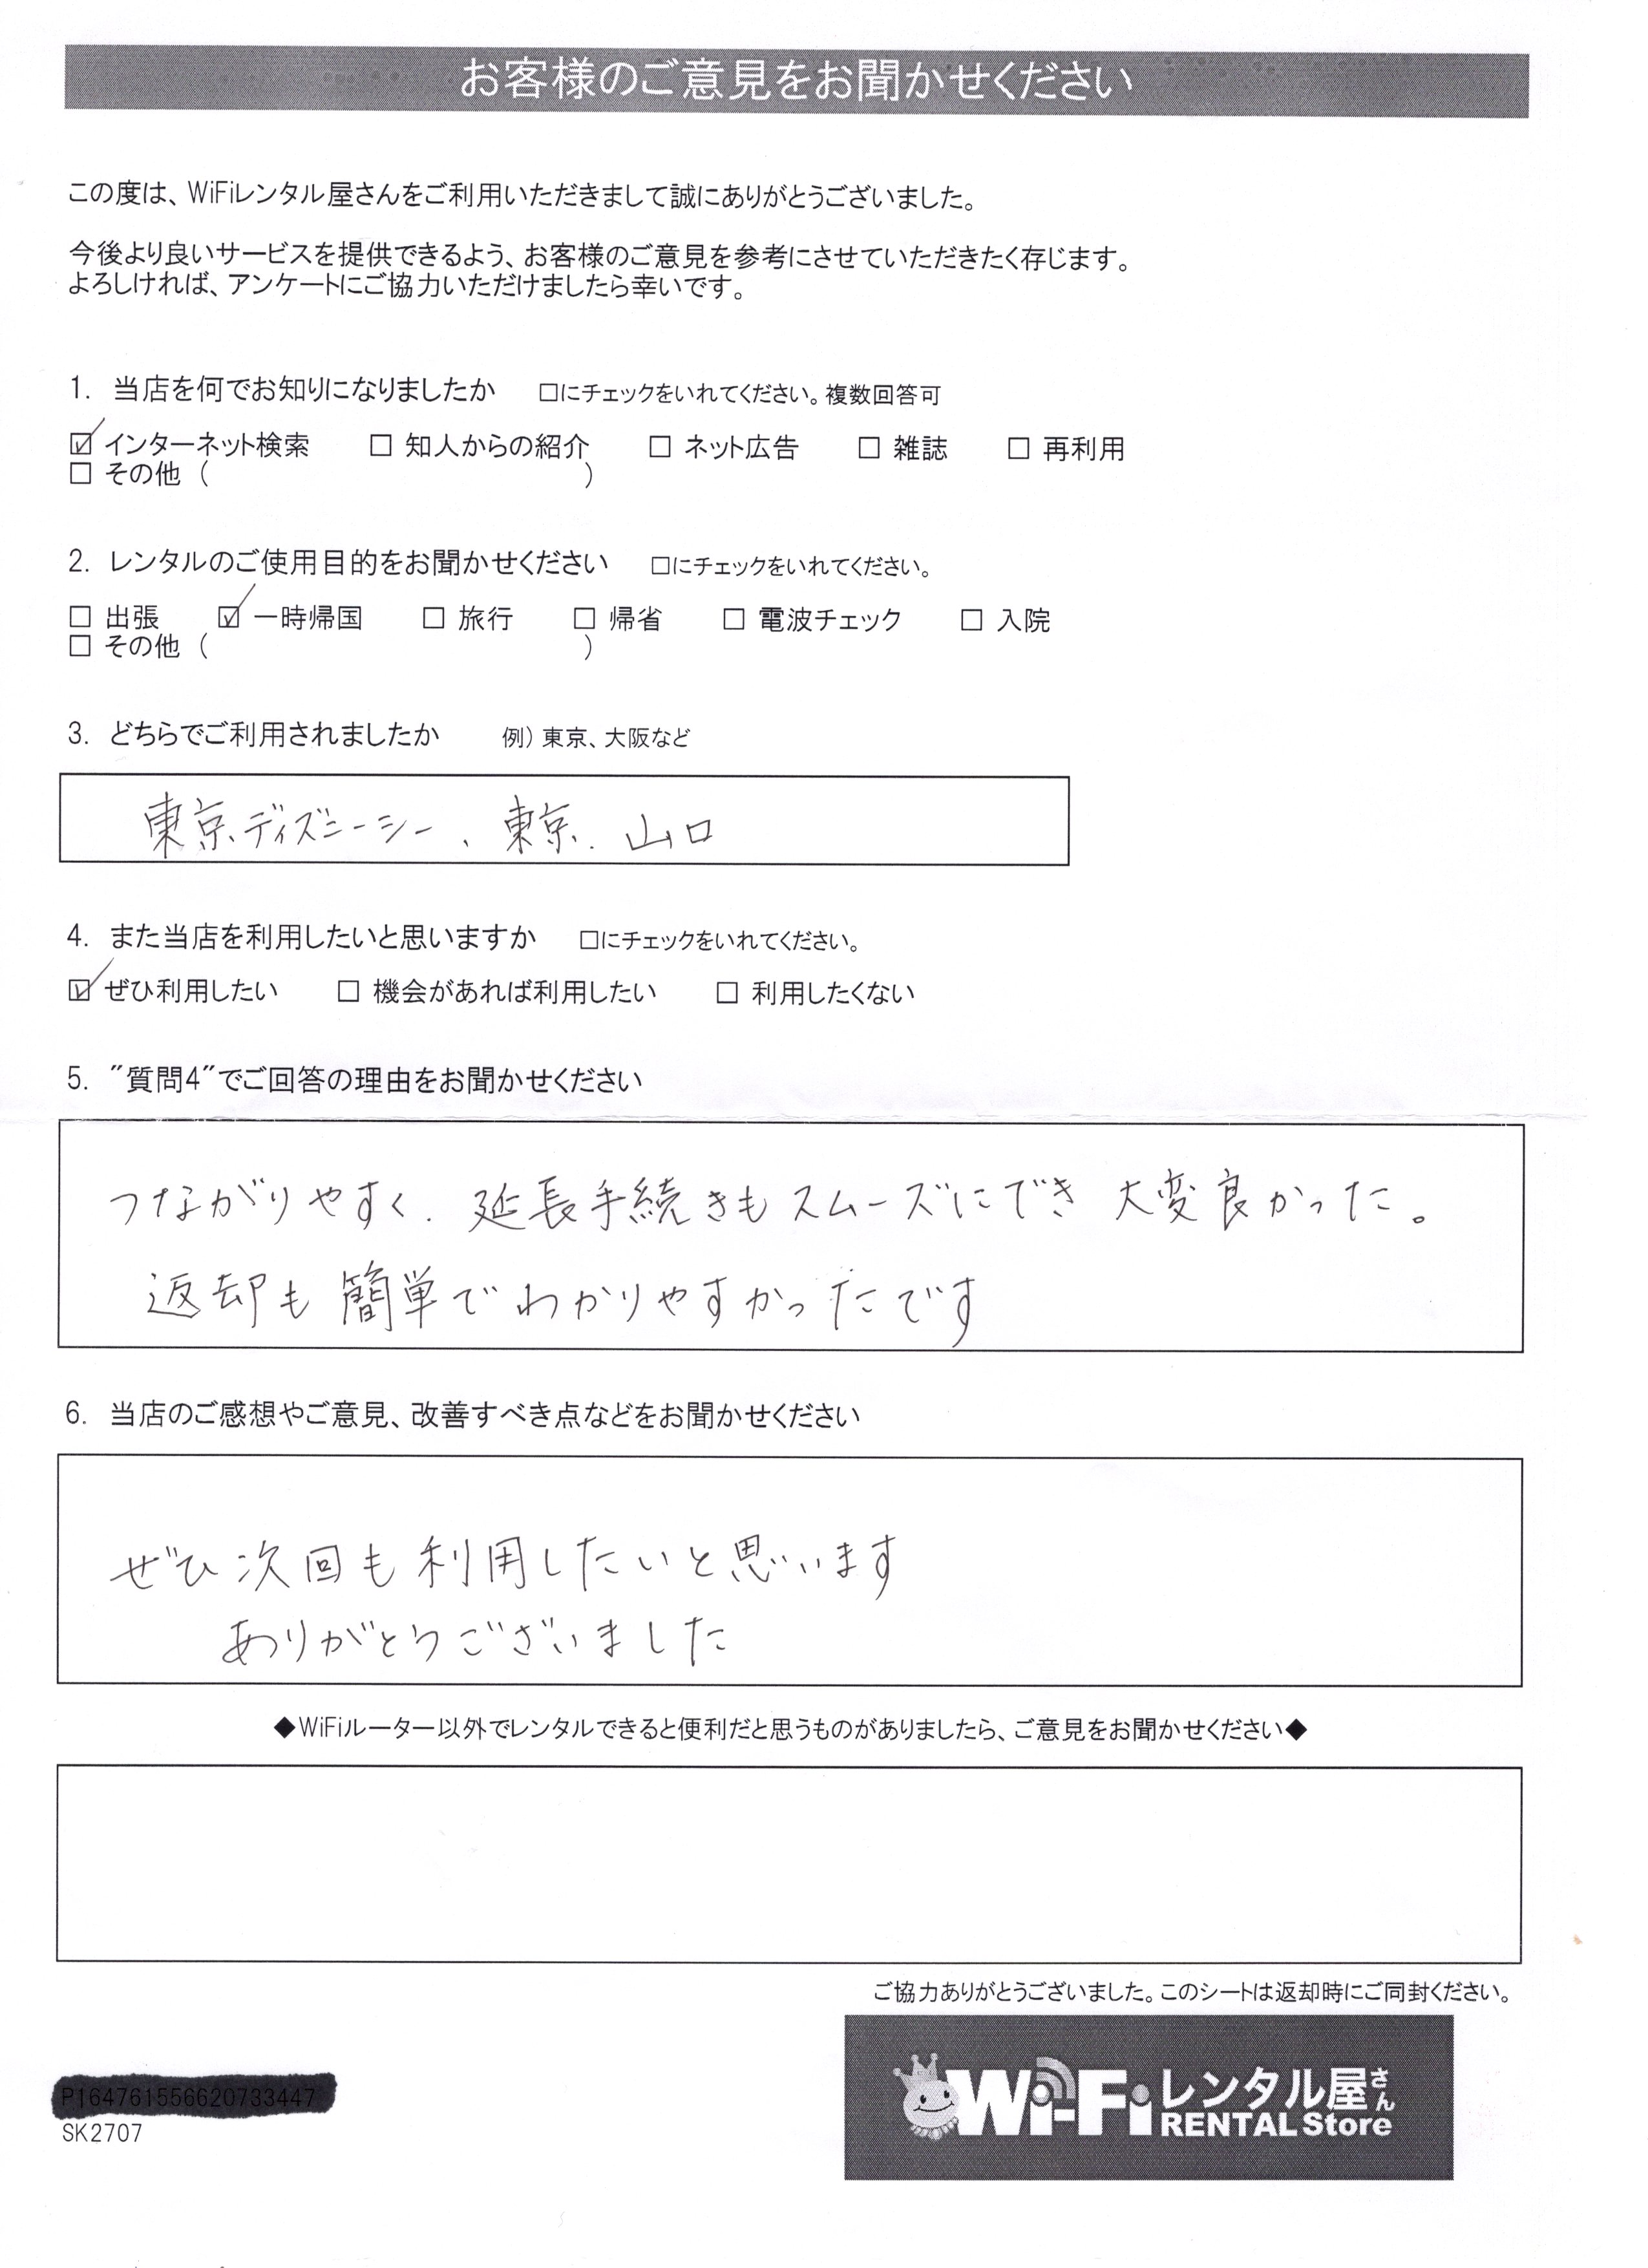 お客様のご意見をお聞かせください
この度は、WiFiレンタル屋さんをご利用いただきまして誠にありがとうございました。
今後より良いサービスを提供できるよう、お客様のご意見を参考にさせていただきたく存じます。
よろしければ、アンケートにご協力いただけましたら幸いです。
1. 当店を何でお知りになりましたか □にチェックをいれてください。複数回答可
☑ インターネット検索 □ 知人からの紹介 □ ネット広告 □ 雑誌 □ 再利用
□ その他 ( )
2. レンタルのご使用目的をお聞かせください □にチェックをいれてください。
□ 出張 ☑ 一時帰国 □ 旅行 □ 帰省 □ 電波チェック □ 入院
□ その他 ( )
3. どちらでご利用されましたか 例) 東京、大阪など
東京ディズニーシー、東京、山口
4. また当店を利用したいと思いますか □にチェックをいれてください。
☑ ぜひ利用したい □ 機会があれば利用したい □ 利用したくない
5. "質問4"でご回答の理由をお聞かせください
つながりやすく、延長手続きもスムーズにでき 大変良かった。
返却も簡単でわかりやすかったです
6. 当店のご感想やご意見、改善すべき点などをお聞かせください
ぜひ次回も利用したいと思います
ありがとうございました
◆WiFiルーター以外でレンタルできると便利だと思うものがありましたら、ご意見をお聞かせください◆
ご協力ありがとうございました。このシートは返却時にご同封ください。
Wi-Fi レンタル屋さん
RENTAL Store
P164761556620733447
SK2707